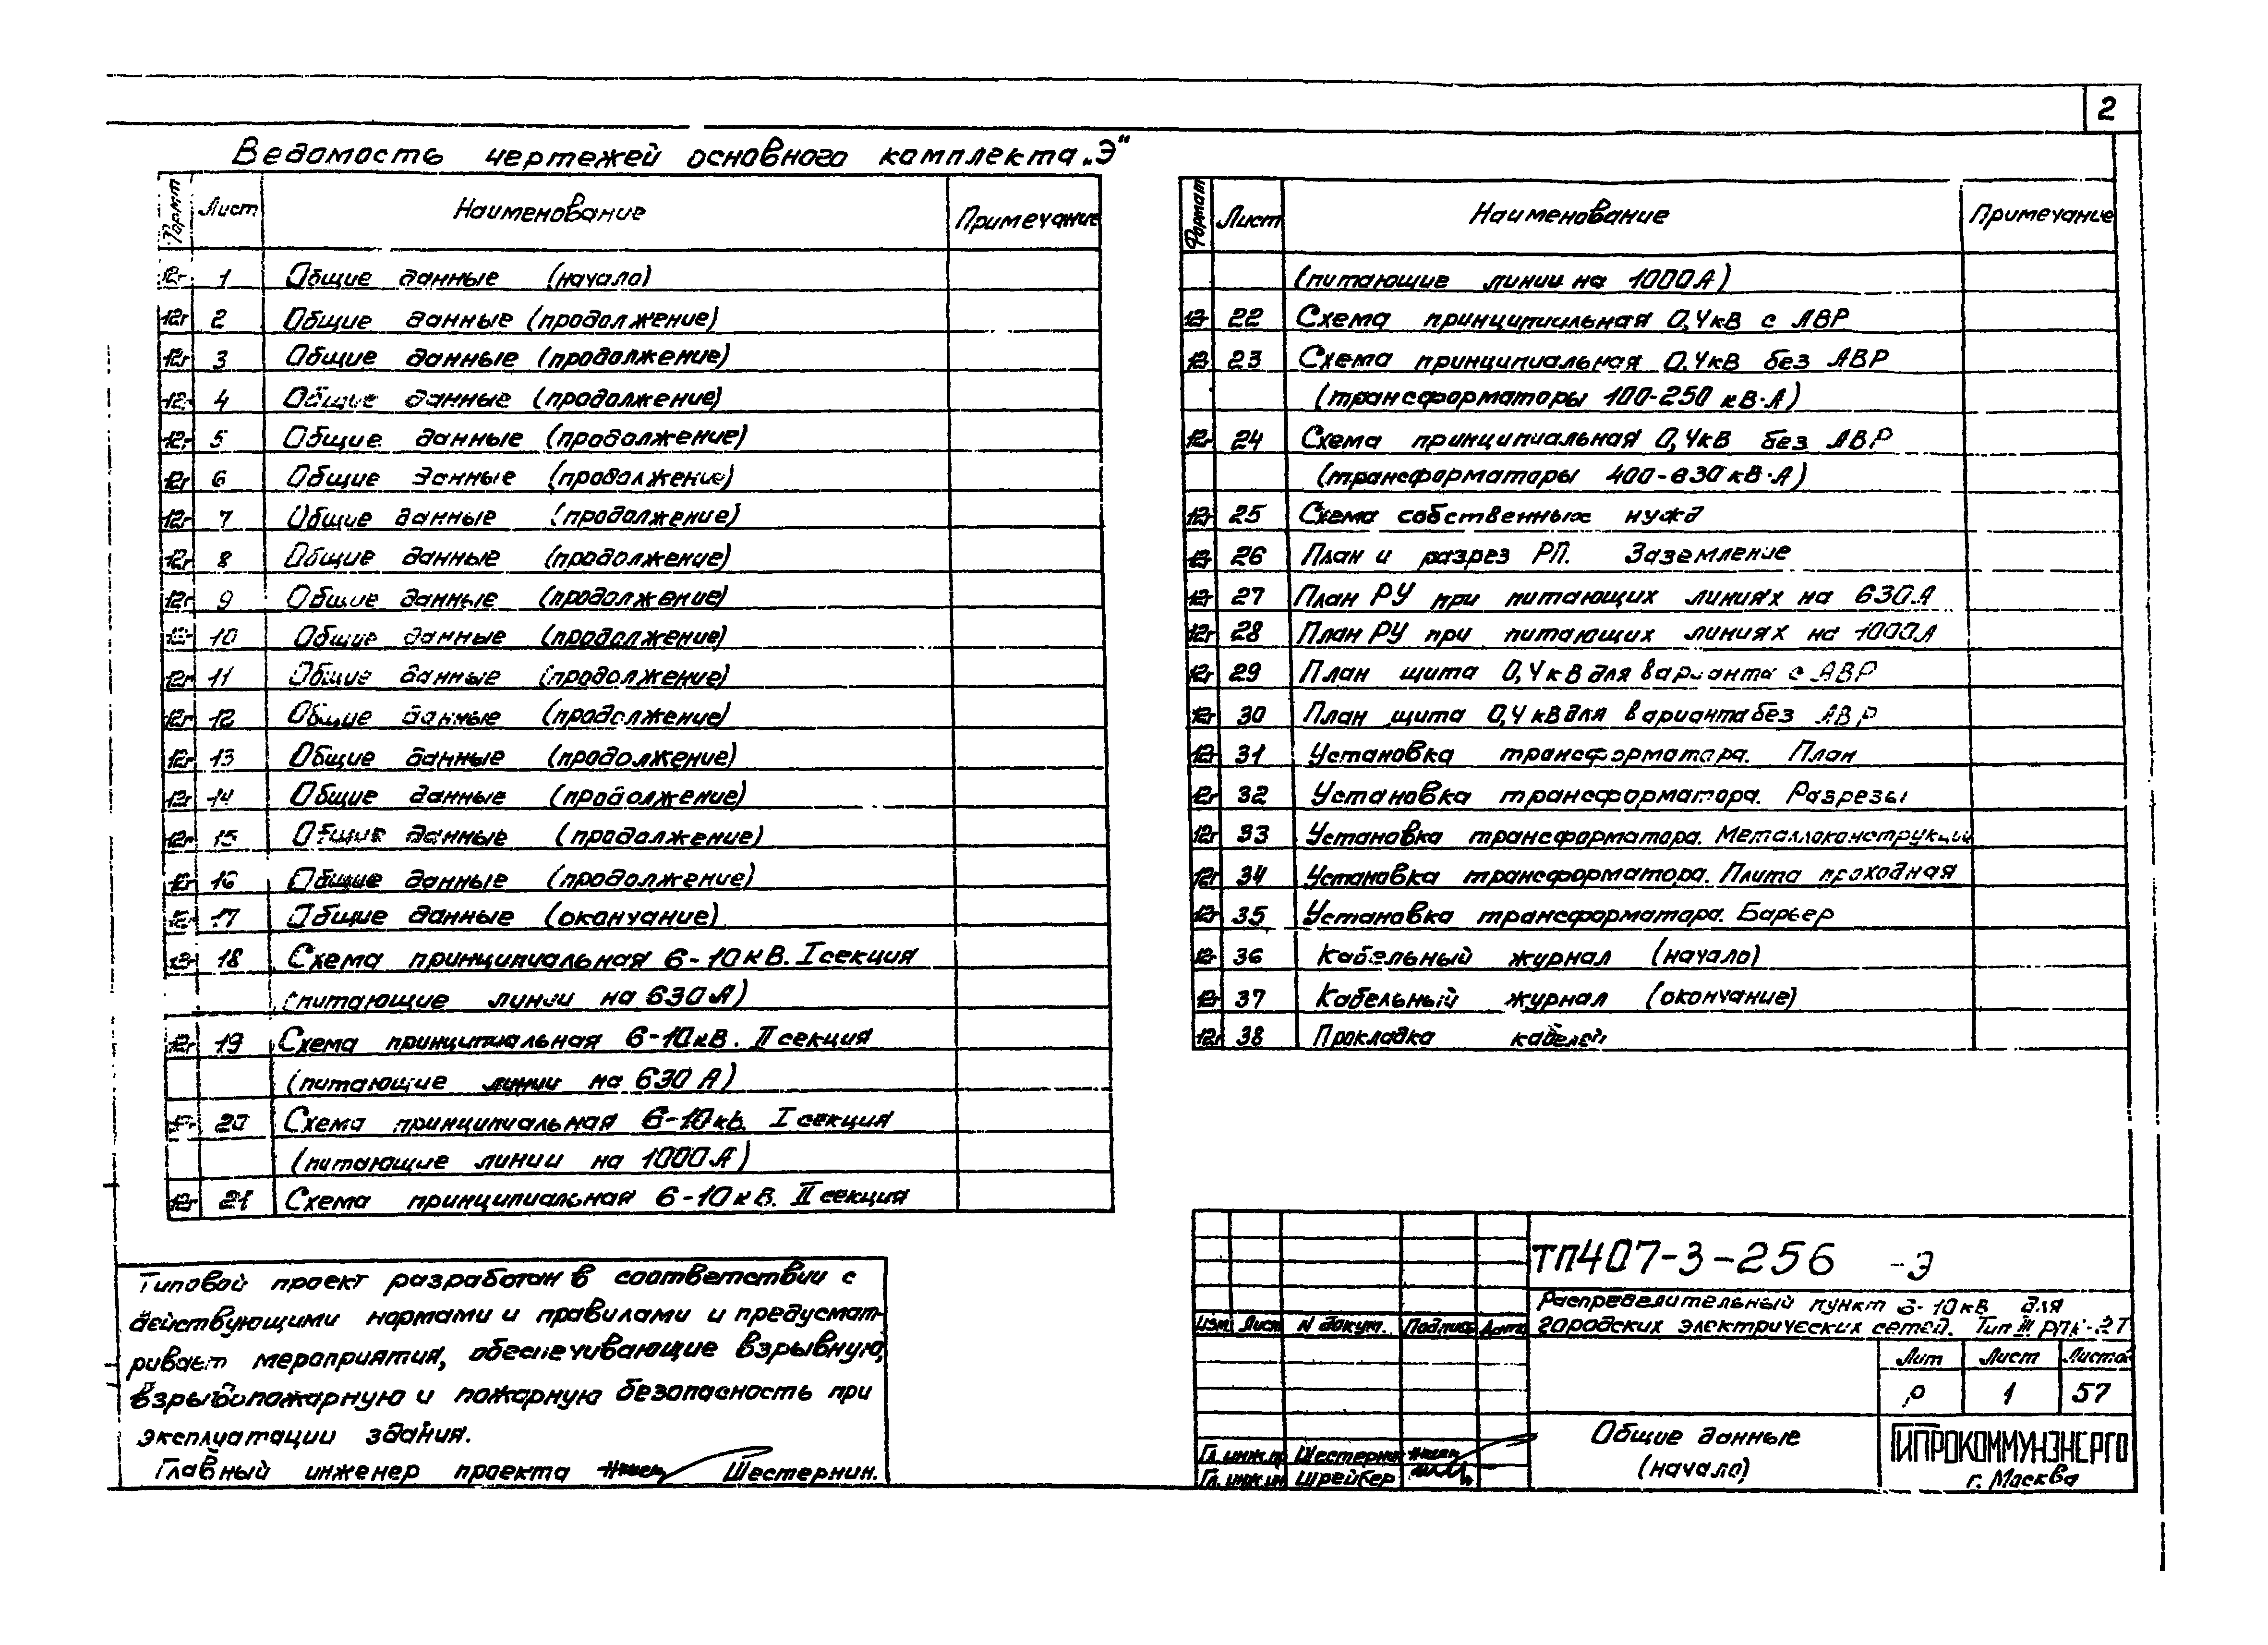 2
Ведомость чертежей основного комплекта „Э"
Формат Лист Наименование Примечание
12г 1 Общие данные (начало)
12г 2 Общие данные (продолжение)
12г 3 Общие данные (продолжение)
12г 4 Общие данные (продолжение)
12г 5 Общие данные (продолжение)
12г 6 Общие данные (продолжение)
12г 7 Общие данные (продолжение)
12г 8 Общие данные (продолжение)
12г 9 Общие данные (продолжение)
12г 10 Общие данные (продолжение)
12г 11 Общие данные (продолжение)
12г 12 Общие данные (продолжение)
12г 13 Общие данные (продолжение)
12г 14 Общие данные (продолжение)
12г 15 Общие данные (продолжение)
12г 16 Общие данные (продолжение)
12г 17 Общие данные (окончание)
12г 18 Схема принципиальная 6-10кВ. I секция
(питающие линии на 630А)
12г 19 Схема принципиальная 6-10кВ. II секция
(питающие линии на 630А)
12г 20 Схема принципиальная 6-10кВ. I секция
(питающие линии на 1000А)
12г 21 Схема принципиальная 6-10кВ. II секция
Формат Лист Наименование Примечание
(питающие линии на 1000А)
12г 22 Схема принципиальная 0,4кВ с АВР
12г 23 Схема принципиальная 0,4кВ без АВР
(трансформаторы 100-250 кВ·А)
12г 24 Схема принципиальная 0,4кВ без АВР
(трансформаторы 400-630кВ·А)
12г 25 Схема собственных нужд
12г 26 План и разрез РП. Заземление
12г 27 План РУ при питающих линиях на 630А
12г 28 План РУ при питающих линиях на 1000А
12г 29 План щита 0,4кВ для варианта с АВР
12г 30 План щита 0,4кВ для варианта без АВР
12г 31 Установка трансформатора. План
12г 32 Установка трансформатора. Разрезы
12г 33 Установка трансформатора. Металлоконструкции
12г 34 Установка трансформатора. Плита проходная
12г 35 Установка трансформатора. Барьер
12г 36 Кабельный журнал (начало)
12г 37 Кабельный журнал (окончание)
12г 38 Прокладка кабелей
Типовой проект разработан в соответствии с
действующими нормами и правилами и предусмат-
ривает мероприятия, обеспечивающие взрывную,
взрывопожарную и пожарную безопасность при
эксплуатации здания.
Главный инженер проекта Шестернин.
ТП407-3-256 -Э
Распределительный пункт 6-10кВ для
городских электрических сетей. Тип III РПК-2Т
Изм. Лист N докум. Подпись Дата
Лит Лист Листов
Р 1 57
Общие данные
(начало)
Гл. инж. пр. Шестернин
Гл. инж. ин. Шрейбер
ГИПРОКОММУНЭНЕРГО
г. Москва